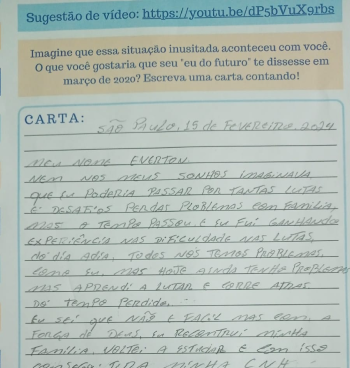 Sugestão de vídeo: https://youtu.be/dP5bVuX9rbs
Imagine que essa situação inusitada aconteceu com você.
O que você gostaria que seu "eu do futuro" te dissesse em
março de 2020? Escreva uma carta contando!
CARTA:
SÃO PAULO, 15 de FEVEREIRO, 2024
MEU NOME EVERTON
NEM NOS MEUS SONHOS IMAGINAVA
QUE EU PODERIA PASSAR POR TANTAS LUTAS
E DESAFIOS PERDAS PROBLEMAS COM FAMILIA,
MAS O TEMPO PASSOU E EU FUI GANHANDO
EXPERIÊNCIA NAS DIFICULDADE NAS LUTAS,
do dia Adia, TODOS NOS TEMOS PROBLEMAS,
COMO EU, MAS HOJE AINDA TENHO PROBLEMAS
MAS APRENDI A LUTAR E CORRE ATRAS
DO TEMPO PERDIDO.
EU SEI QUE NÃO E FACIL MAS COM A
FORÇA DE DEUS, EU RECONTRUI MINHA
FAMILIA, VOLTEI A ESTUDAR E COM ISSO
TIRA MINHA CNH